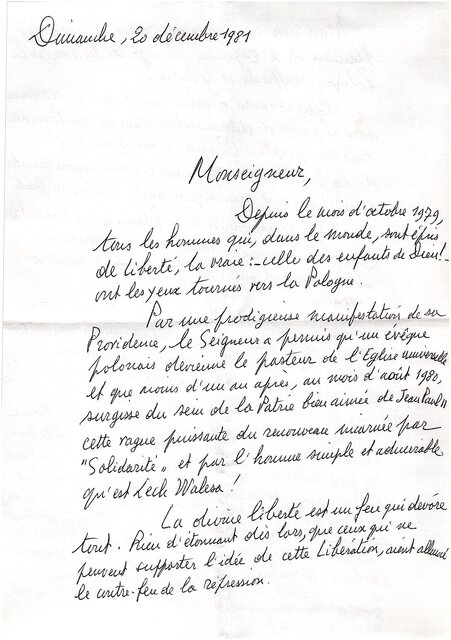 Dimanche, 20 décembre 1981
Monseigneur,
Depuis le mois d'octobre 1979,
tous les hommes qui, dans le monde, sont épris
de liberté, la vraie :- celle des enfants de Dieu!-
ont les yeux tournés vers la Pologne.
Par une prodigieuse manifestation de sa
Providence, le Seigneur a permis qu'un évêque
polonais devienne le pasteur de l'Eglise universelle
et que moins d'un an après, au mois d'août 1980,
surgisse du sein de la Patrie bien aimée de Jean Paul II
cette vague puissante du renouveau incarnée par
"Solidarité" et par l'homme simple et admirable
qu'est Lech Walesa !
La divine liberté est un feu qui dévore
tout. Rien d'étonnant dès lors, que ceux qui ne
peuvent supporter l'idée de cette Libération, aient allumé
le contre-feu de la répression.